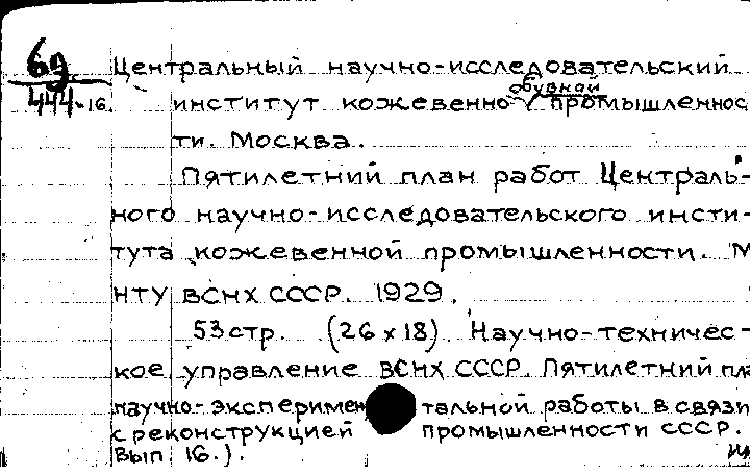 69
444-16.
Центральный научно-исследовательский
обувной
институт кожевенно-промышленнос
ти. Москва.
Пятилетний план работ Централь-
ного научно-исследовательского инсти-
тута кожевенной промышленности. М
НТУ ВСНХ СССР. 1929.
53 стр. (26 x 18) Научно-техничес-
кое управление ВСНХ СССР. Пятилетний пла
научно-экспериментальной работы в связи
с реконструкцией промышленности СССР.
Вып. 16.).